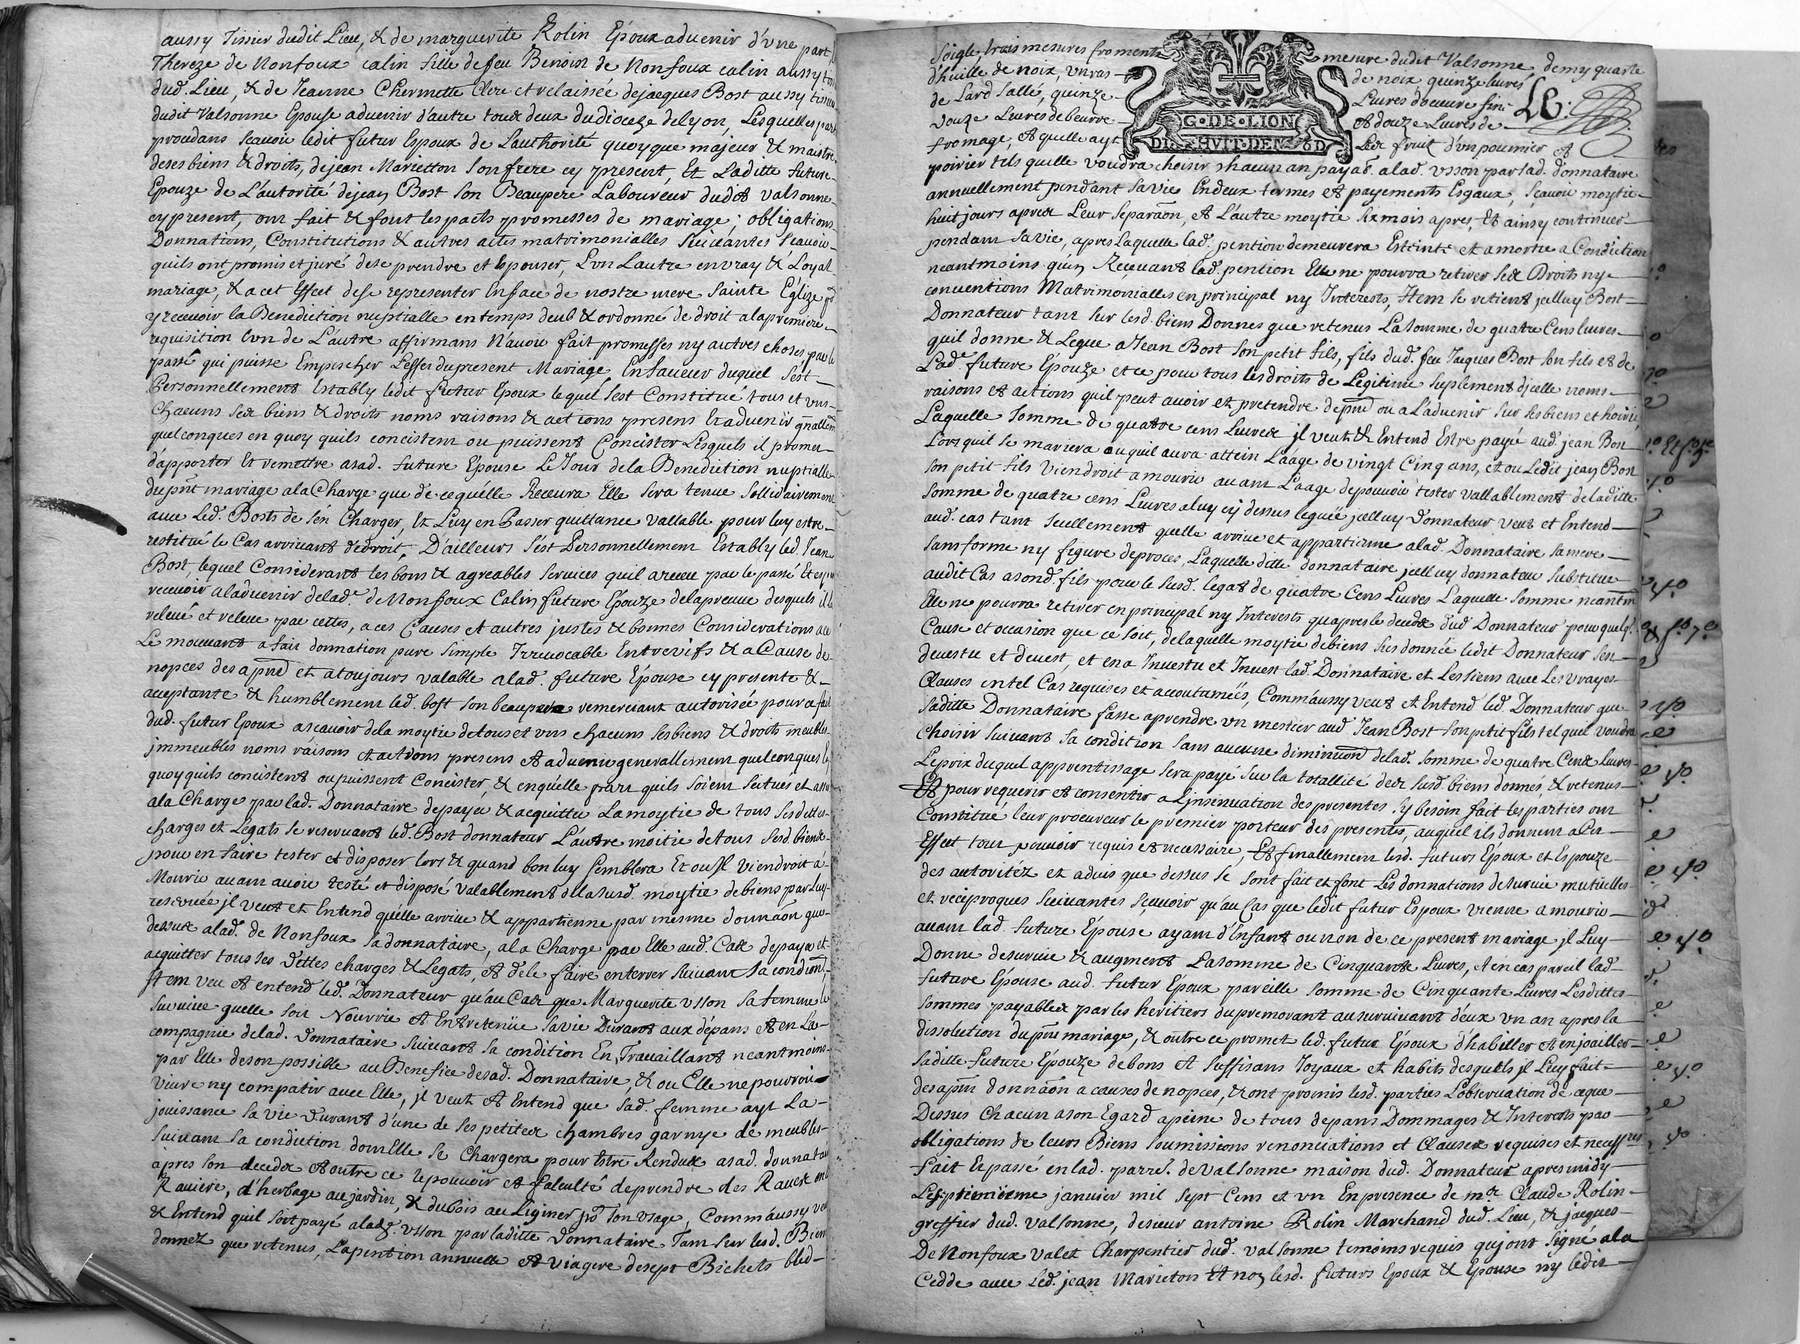 aussy Tissier dudit Lieu, & de marguerite Rolin Epoux advenir d'une part,
Thereze de Nonfoux calin fille de feu Benoist de Nonfoux calin aussy
dud. Lieu, & de Jeanne Chermette Elle et relaissée de jacques Bost aussy tissier
dudit Valsonne Epouse advenir d'autre tous deux du dioceze de Lyon, Lesquelles
procedans scauoir ledit futur Espoux de L'authorité quoyque majeur & maistre
de ses biens & droits, de jean Marietton son frere cy present, Et Laditte future
Epouze de L'autorité de jean Bost son Beaupere Laboureur dudit valsonne
cy present, ont fait & font les pacts promesses de mariage, obligations
Donnations, Constitutions & autres actes matrimonialles Suiuantes scauoir
quils ont promis et juré de se prendre et Espouser, L'un L'autre en vray & Loyal
mariage, & a cet Effect de se representer En face de nostre mere Sainte Eglize
y receuoir la Benediction nuptialle en temps deub & ordonne de droit a la premiere
requisition L'un de L'autre affirmans N'auoir fait promesses ny autres choses par le
passé qui puisse Empescher L'effet du present Mariage En faueur duquel s'est
Personnellement Estably ledit futur Epoux lequel s'est Constitué tous et uns
Chacuns ses biens & droits noms raisons & actions presens Et aduenir gnallem
quelconques en quoy quils concistent ou puissent Concister Lesquels il promet
d'apporter Et remettre a sad. future Epouse Le Jour de la Benediction nuptialle
du pnt mariage a la Charge que de ce qu'elle Receura Elle sera tenue sollidairement
auec Led. Bost de s'en Charger, Et Luy en Passer quittance vallable pour luy estre
restitué le Cas arriuant de droit, D'ailleurs s'est Personnellement Estably led. Jean
Bost, lequel Considerant les bons & agreables seruices quil a receu par le passé Et espere
receuoir a l'aduenir de lad.e de Nonfoux Calin future Epouze de la preuue desquels il la
releué et releue par cettes, a ces Causes et autres justes & bonnes Considerations a ce
Le mouuant a fait donnation pure simple Irreuocable Entre vifs & a Cause de
nopces des a pnt et a toujours valable a lad. future Epouse cy presente &
acceptante & humblement led. bost son beaupere remerciant autorisée pour ce fait
dud. futur Epoux a scauoir de la moytie de tous et uns chacuns ses biens & droits meubles
jmmeubles noms raisons et actions presens et aduenir generallement quelconques
quoy quils concistent ou puissent concister, & en quelle part quils soient scitués et
a la Charge par lad. Donnataire de payer & acquitter La moytie de tous ses dettes
charges et Legats se reseruant led. Bost donnateur L'autre moitie de tous sesd. biens
pour en faire tester et disposer lors & quand bon luy semblera Et ou Il viendroit a
Mourir auant auoir testé et disposé valablement de la susd. moytie de biens par Luy
reseruée jl veut et Entend qu'elle arriue & appartienne par mesme donnaon que
dessus a lad. de Nonfoux sa donnataire, a la Charge par Elle aud. Cas de payer et
acquitter tous ses dettes charges & Legats, et de le faire enterrer suiuant sa condion
Item veut et entend led. Donnateur qu'au Cas que Marguerite Usson sa femme
suruiue quelle soit Nourrie et Entretenüe sa vie Durant aux dépans et en La
compagnie de lad. Donnataire suiuant sa condition En Trauaillant neantmoins
par Elle de son possible au Benefice de sad. Donnataire, & ou Elle ne pourroit
viure ny compatir auec Elle, jl veut et Entend que sad. femme ayt La
jouissance sa vie durant d'une de ses petites chambres garnye de meubles
suiuant sa condition dont Elle se Chargera pour Estre Rendus a sad. donnataire
apres son decedz et outre ce le pouuoir et faculté de prendre des Raues en la
Rauiere, d'herbage au jardin, & du bois au Ligner po. son usage, Comm'aussy veut
& Entend quil soit payé a lad. Usson par laditte Donnataire Tant sur lesd. Biens
donnez que retenus, La pention annuelle et viagere de sept Bichets bled
Soigle, trois mesures froment mesure dudit Valsonne, demy quarte
d'huille de noix, un ras de noix quinze liures
de Lard sallé, quinze Liures de beurre fin
douze Liures de beurre et douze Liures de
fromage, et quelle ayt Les fruit d'un poumier et
poirier tels quelle voudra choisir chacun an payab a lad. Usson par lad. donnataire
annuellement pendant sa vie En deux termes et payements Esgaux, scauoir moytie
huit jours apres Leur separaon, et L'autre moytie six mois apres, Et ainsy continuer
pendant sa vie, apres Laquelle lad. pention demeurera Esteinte et amortie a Condiction
neantmoins qu'en Receuant lad. pention Elle ne pourra retirer ses Droits ny
conuentions Matrimonialles en principal ny Interests, Item se retient jcelluy Bost
Donnateur tant sur lesd. biens Donnés que retenus La somme de quatre Cens liures
quil donne & Legue a Jean Bost son petit fils, fils dud. feu Jaques Bost son fils et de
Lad.e future Epouze et ce pour tous les droits de Legitime suplément d'jcelle noms
raisons et actions quil peut auoir et pretendre de pnt ou a L'aduenir sur ses biens et hoirie,
Laquelle somme de quatre cens Liures jl veut & Entend Estre payé aud. jean Bost
Lors quil se mariera ou quil aura attein L'aage de vingt Cinq ans, et ou Ledit jean Bost
son petit fils viendroit a mourir auant L'aage de pouuoir tester vallablement de laditte
somme de quatre cens Liures a luy cy dessus leguée jcelluy Donnateur veut et Entend
aud. cas tant seullement quelle arriue et appartienne a lad. Donnataire sa mere
sans forme ny figure de proces, Laquelle ditte donnataire jcelluy donnateur substitue
audit Cas a sond. fils pour le susd. legat de quatre Cens Liures Laquelle somme neantm
Elle ne pourra retirer en principal ny Interests qu'apres le decedz dud. Donnateur pour quelq.
Cause et occasion que ce soit, de laquelle moytie de biens sus donnée ledit Donnateur s'en
deuestu et deuest, et en a Inuestu et Inuest lad. Donnataire et Les siens auec Les vrayes
Clauses en tel Cas requises et acoutumées, Comm'aussy veut et Entend led. Donnateur que
laditte Donnataire fasse aprendre un mestier aud. Jean Bost son petit fils tel quil voudra
choisir suiuant sa condition sans aucune diminuon de lad. somme de quatre Cens Liures
Le prix duquel apprentissage sera payé sur la totallité des susd. biens donnés & retenus
Et pour requerir et consentir a L'insinuation des presentes sy besoin fait les parties ont
Constitué leur procureur le premier porteur des presentes, auquel ils donnent a cet
Effect tout pouuoir requis et necessaire, Et finallement lesd. futurs Epoux et Espouze
des autoritéz et aduis que dessus se sont fait et font Les donnations de suruie mutuelles
et reciproques suiuantes scauoir qu'au Cas que ledit futur Espoux vienne a mourir
auant lad. future Epouse ayant d'Enfans ou non de ce present mariage, jl Luy
Donne de suruie & augment La somme de Cinquante Liures, et en cas pareil lad.
future Epouse aud. futur Epoux pareille somme de Cinquante Liures Lesdittes
sommes payables par les heritiers du premorant au suruiuant d'eux un an apres la
dissolution du pnt mariage, & outre ce promet led. futur Epoux d'habiller et enjoailler
laditte future Epouze de bons et suffisans Joyaux et habits desquels jl Luy fait
des a pnt donnaon a causes de nopces, & ont promis lesd. parties L'obseruation de ce que
Dessus Chacun a son Egard a peine de tous depans Dommages & Interests par
obligations de leurs Biens soumissions renonciations et Clauses requises et necessres
Fait Et passé en lad. parre. de Valsonne maison dud. Donnateur apres midy
Le septiemme janvier mil sept Cens et un En presence de mre Claude Rolin
greffier dud. Valsonne, de sieur antoine Rolin Marchand dud. Lieu, & jacques
De Nonfoux valet Charpentier dud. Valsonne temoins requis qui ont signé a la
Cedde auec Led. jean Marieton Et non lesd. futurs Epoux & Epouse ny ledit
G·DE·LION
DIX HUIT DEN 6D